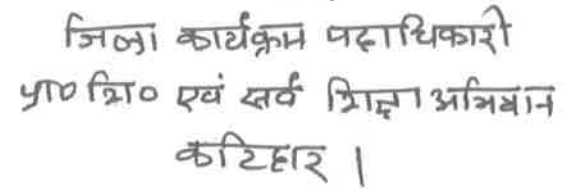 जिला कार्यक्रम पदाधिकारी
प्रा० शि० एवं सर्व शिक्षा अभियान
कटिहार |